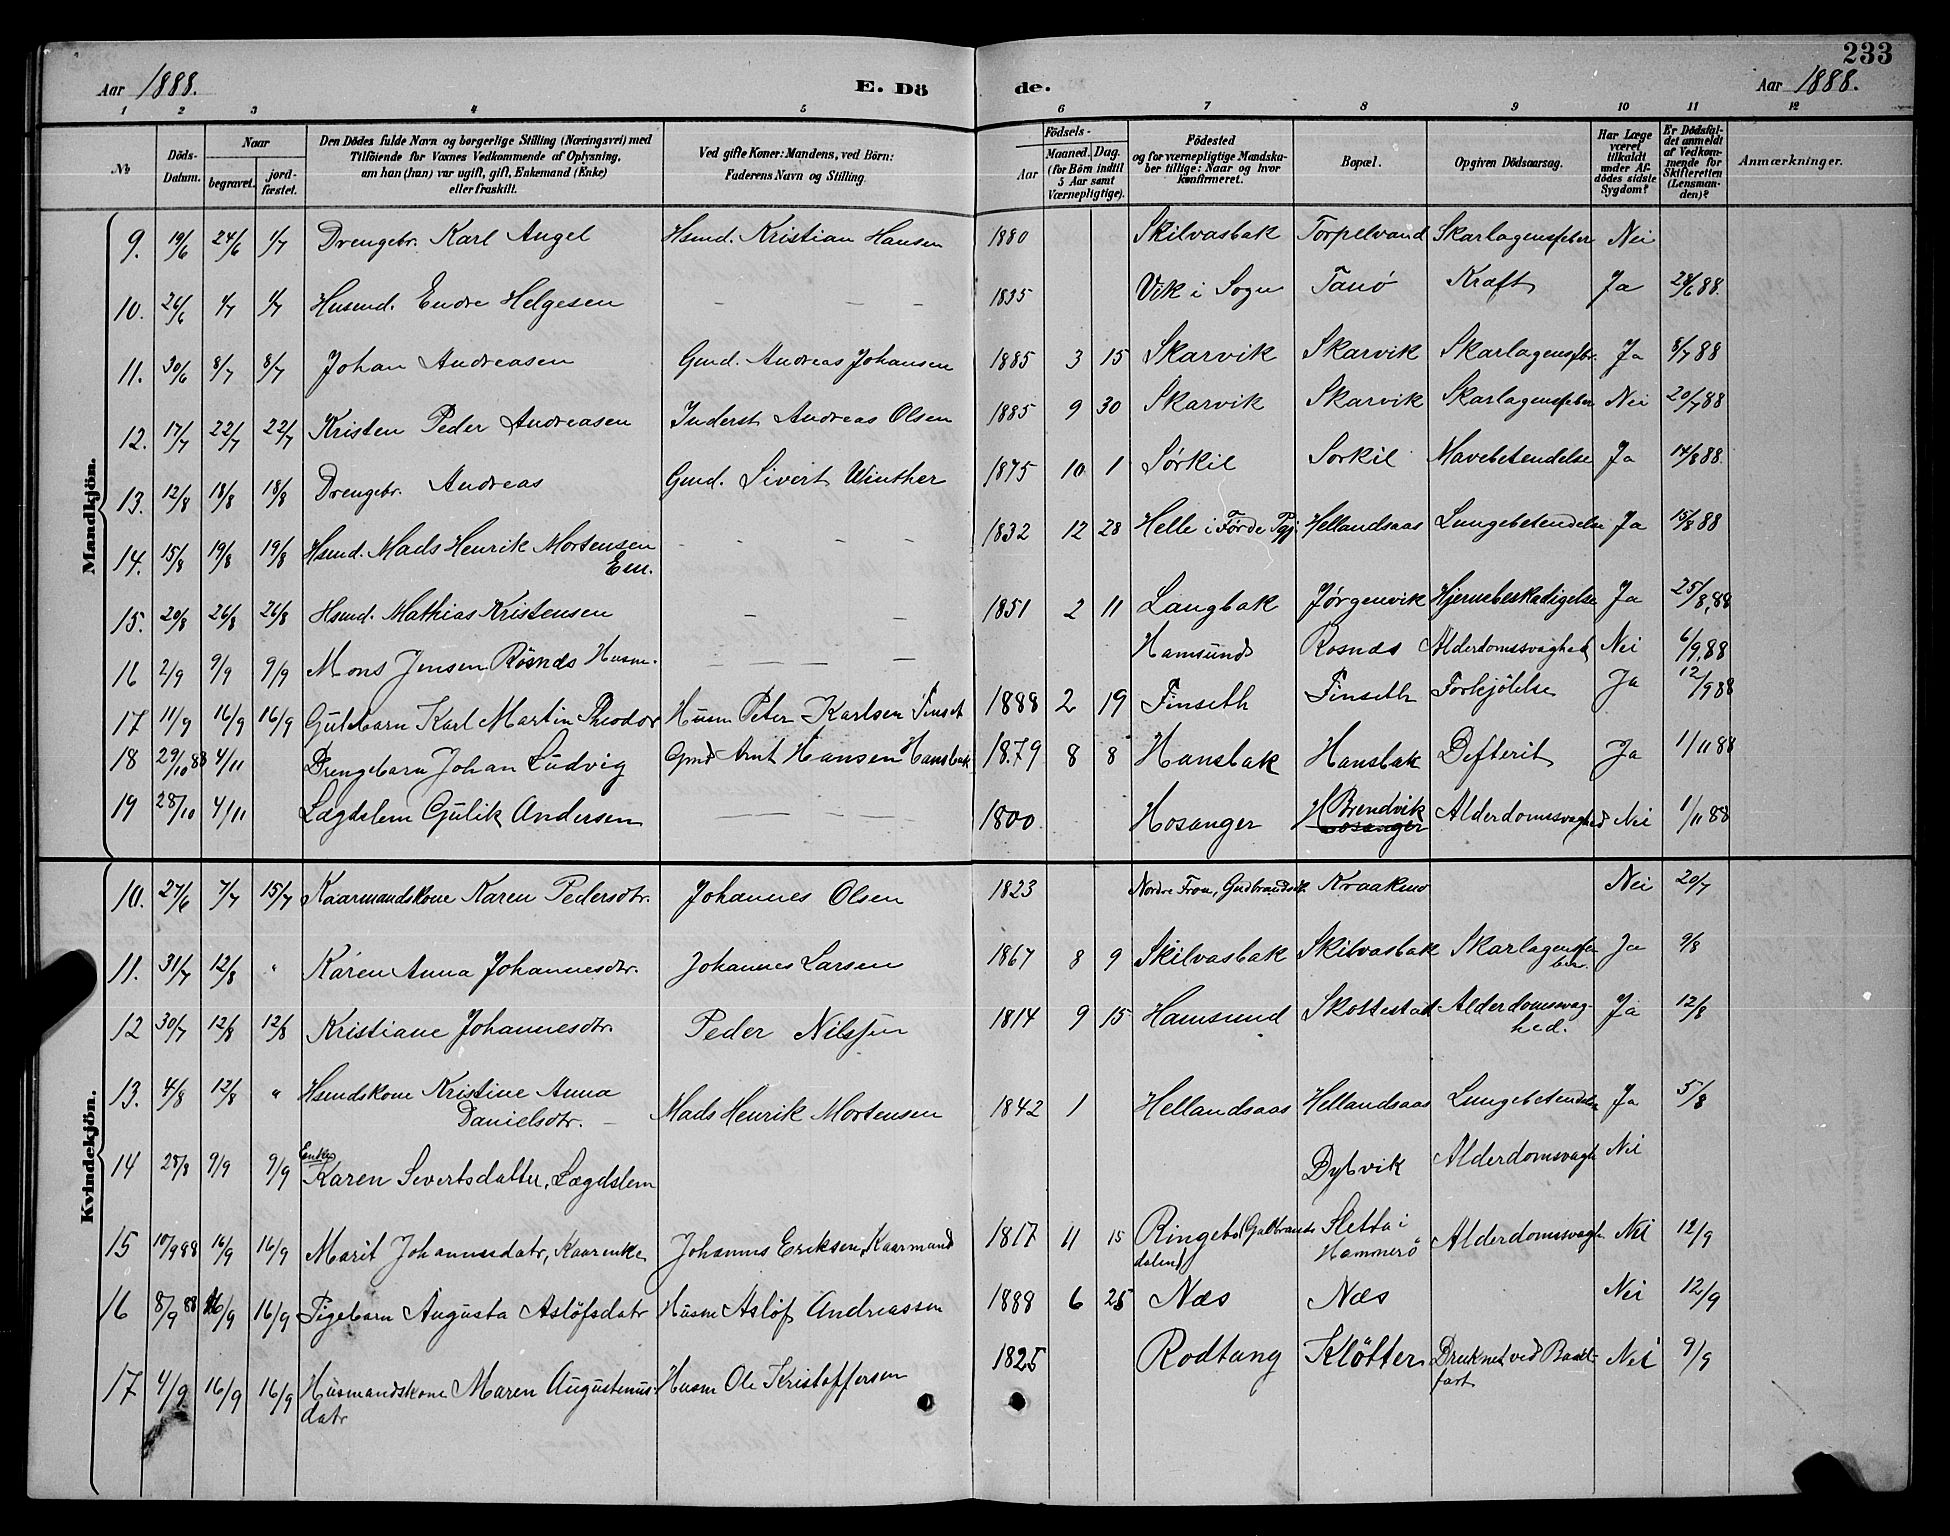 233
Aar 1888. E. Dö de. Aar 1888.
1 2 3 4 5 6 7 8 9 10 11 12
№ Döds-Datum. Naar begravet. jord-fæstet. Den Dödes fulde Navn og borgerlige Stilling (Næringsvei) med Tilföiende for Voxnes Vedkommende af Oplysning, om han (hun) var ugift, gift, Enkemand (Enke) eller fraskilt. Ved gifte Koner: Mandens, ved Börn: Faderens Navn og Stilling. Födsels- Aar Maaned. Dag. (for Börn indtil 5 Aar samt Værnepligtige). Födested og for værnepligtige Mandskaber tillige: Naar og hvor konfirmeret. Bopæl. Opgiven Dödsaarsag. Har Læge været tilkaldt under Afdödes sidste Sygdom? Er Dödsfaldet anmeldt af Vedkommende for Skifteretten (Lensmanden)? Anmærkninger.
Mandkjön.
9. 19/6 24/6 1/7 Drengebr. Karl Angel Hsmd. Kristian Hansen 1880 Skilvasbak Torpelvand Skarlagensfeber Nei
10. 26/6 1/7 1/7 Husmd. Endre Helgesen – – – 1835 Vik i Sogn Tanö Kræft Ja 28/6 88.
11. 30/6 8/7 8/7 Johan Andreasen Gmd. Andreas Johansen 1885 3 15 Skarvik Skarvik Skarlagensfbr. Ja 8/7 88
12. 17/7 22/7 22/7 Kristen Peder Andreasen Inderst Andreas Olsen 1885 9 30 Skarvik Skarvik Skarlagensfeber Nei 20/7 88
13. 12/8 18/8 18/8 Drengebr. Andreas Gmd. Sivert Winther 1875 10 1 Sørkil Sorkil Mavebetendelse Ja 14/8 88.
14. 15/8 19/8 19/8 Hsmd. Mads Henrik Mortensen Em. - - - - 1832 12 28 Helle i Førde Pgj. Hellandsaas Lungebetendelse Ja 15/8 88
15. 20/8 26/8 26/8 Hsmd. Mathias Kristensen – – 1851 2 11 Langbak Jørgenvik Hjernebeskadigelse Ja 25/8, 88
16 2/9 9/9 9/9 Mons Jensen Rösnæs Husm. – – – – Hamsund Rosnæs Alderdomssvaghed Nei 6/9 88
17 11/9 16/9 16/9 Gutebarn Karl Martin Theodor Husm Peter Karlsen Finset 1888 2 19 Finseth Finseth Forkjölelse Ja 12/9 88
18 29/10 88 4/11 Drengebarn Johan Ludvig Gmd Arnt Hansen Hansbak 1879 8 8 Hansbak Hansbak Defterit Ja 1/11 88
19 28/10 4/11 Lægdslem Gulik Andersen – – – – 1800 Hosanger Brendvik Hosanger Alderdomssvaghed Nei 1/11 88
Kvindekjön.
10. 27/6 7/7 15/7 Kaarmandskone Karen Pedersdtr. Johannes Olsen 1823 Nordre Fron, Gudbrandsd. Kraakmo Nei 20/7
11. 31/7 12/8 " Karen Anna Johannesdtr. Johannes Larsen 1867 8 9 Skilvasbak Skilvasbak Skarlagensfeber. Ja 9/8
12 30/7 12/8 12/8 Kristiane Johannesdtr. Peder Nilssen 1814 9 15 Hamsund Skottestad Alderdomssvaghed. Ja 12/8
13. 4/8 12/8 " Hsmdskone Kristine Anna Danielsdtr. – Mads Henrik Mortensen 1842 1 Hellandsaas Hellandsaas Lungebetendelse Ja 5/8
14 28/8 9/9 9/9 Enke Karen Sivertsdatter, Lægdslem Dybvik Alderdomsvagh Nei
15 10/9 88 16/9 16/9 Marit Johannesdatr, Kaarenke Johannes Eriksen, Kaarmand 1817 11 15 Ringebo (Gulbrandsdalen) Sletta i Hammerö Alderdomssvagh Nei 12/9
16 8/9 88 16/9 16/9 Pigebarn Augusta Aslöfsdatr Husm Aslöf Andreassen 1888 6 25 Næs Næs Nei 12/9
17 4/9 16/9 16/9 Husmandskone Maren Augustinusdatr Husm Ole Kristoffersen 1825 Rodtang Klötter Druknet ved Baadfart Nei 9/9